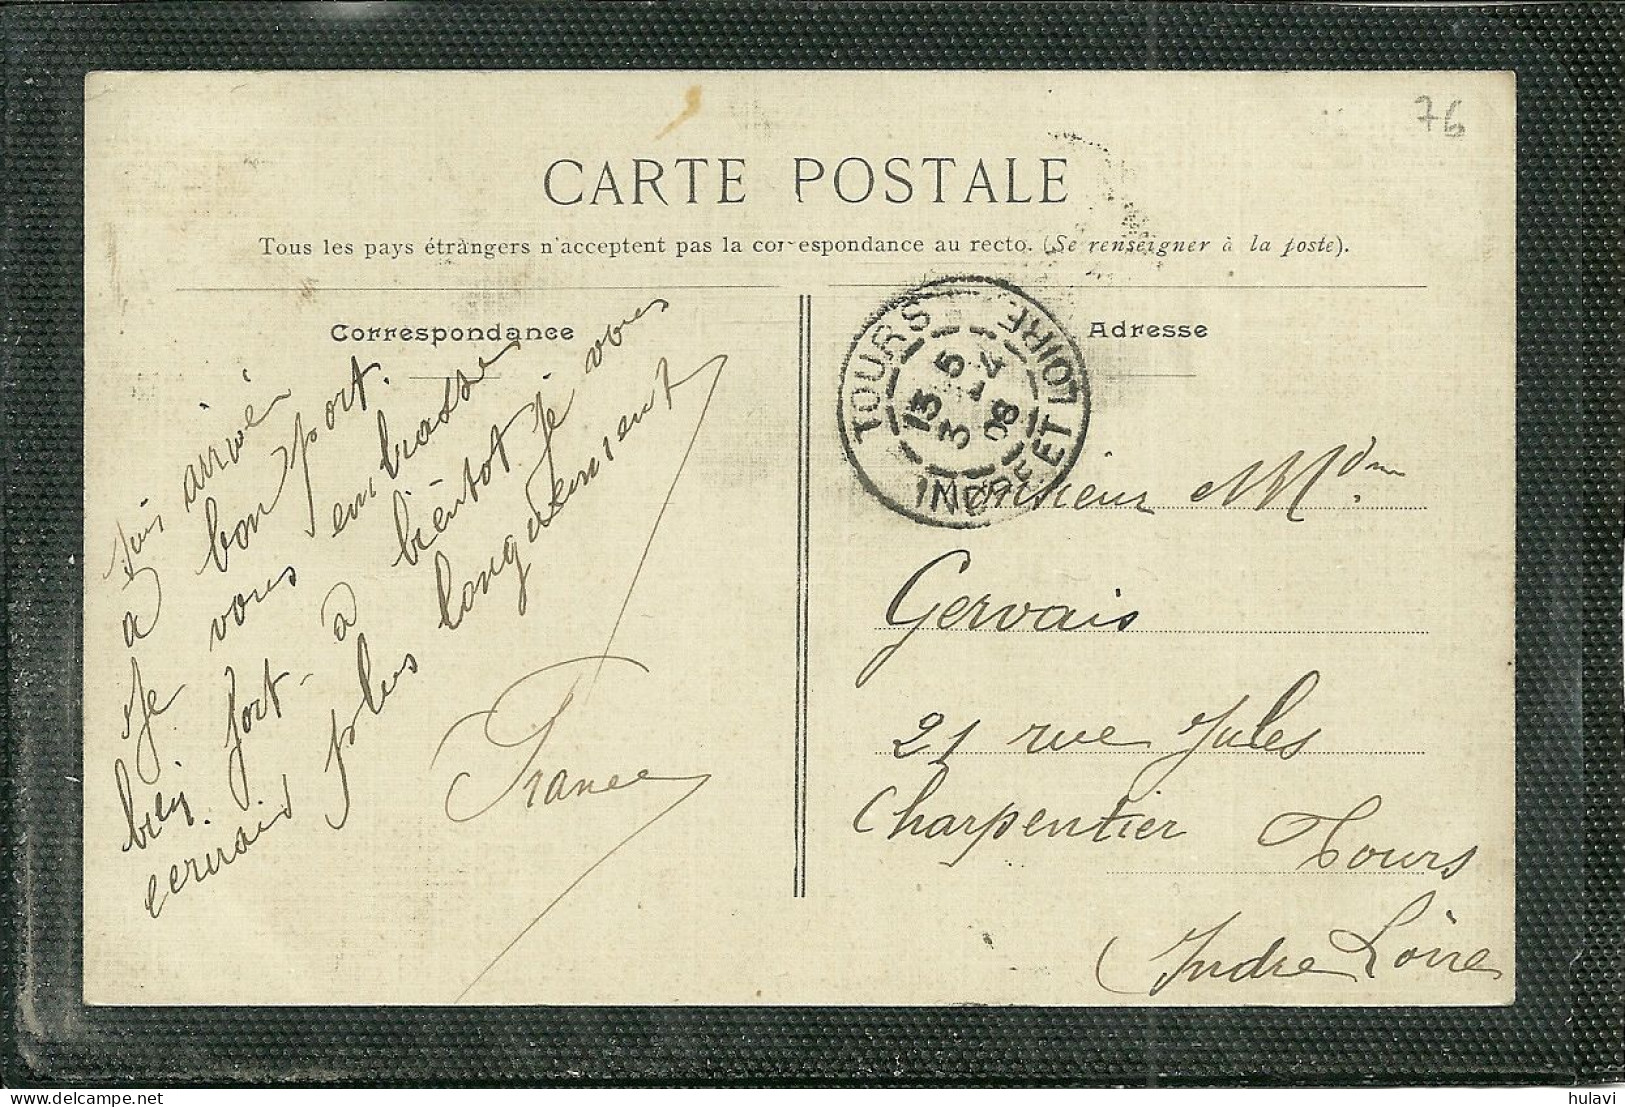 76
CARTE POSTALE
Tous les pays étrangers n'acceptent pas la correspondance au recto. (Se renseigner à la poste).
Correspondance
suis arrivée
a bon port.
Je vous embrasse
bien fort - a bientot. je vous
ecrirais plus longuement
France
Adresse
TOURS
INDRE ET LOIRE
13 5
3 - 4
08
Monsieur Mdm
Gervais
21 rue Jules
Charpentier Tours
(Indre Loire
delcampe.net
hulavi